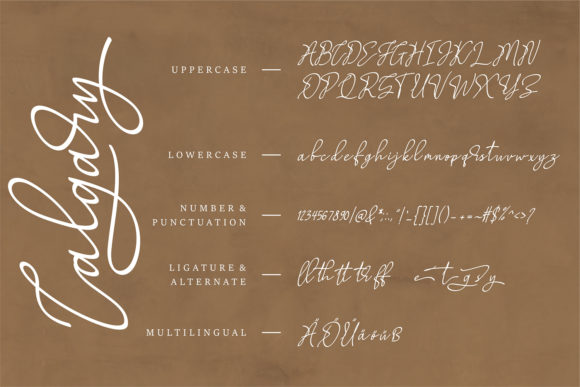 Calgary
UPPERCASE —
ABCDEFGHIJKLMN
OPQRSTUVWXYZ
LOWERCASE —
abcdefghijklmnopqrstuvwxyz
NUMBER &
PUNCTUATION —
1234567890/@&*;:.,"/'_{}[]()-+=~#$%^<>?
LIGATURE &
ALTERNATE —
MULTILINGUAL —